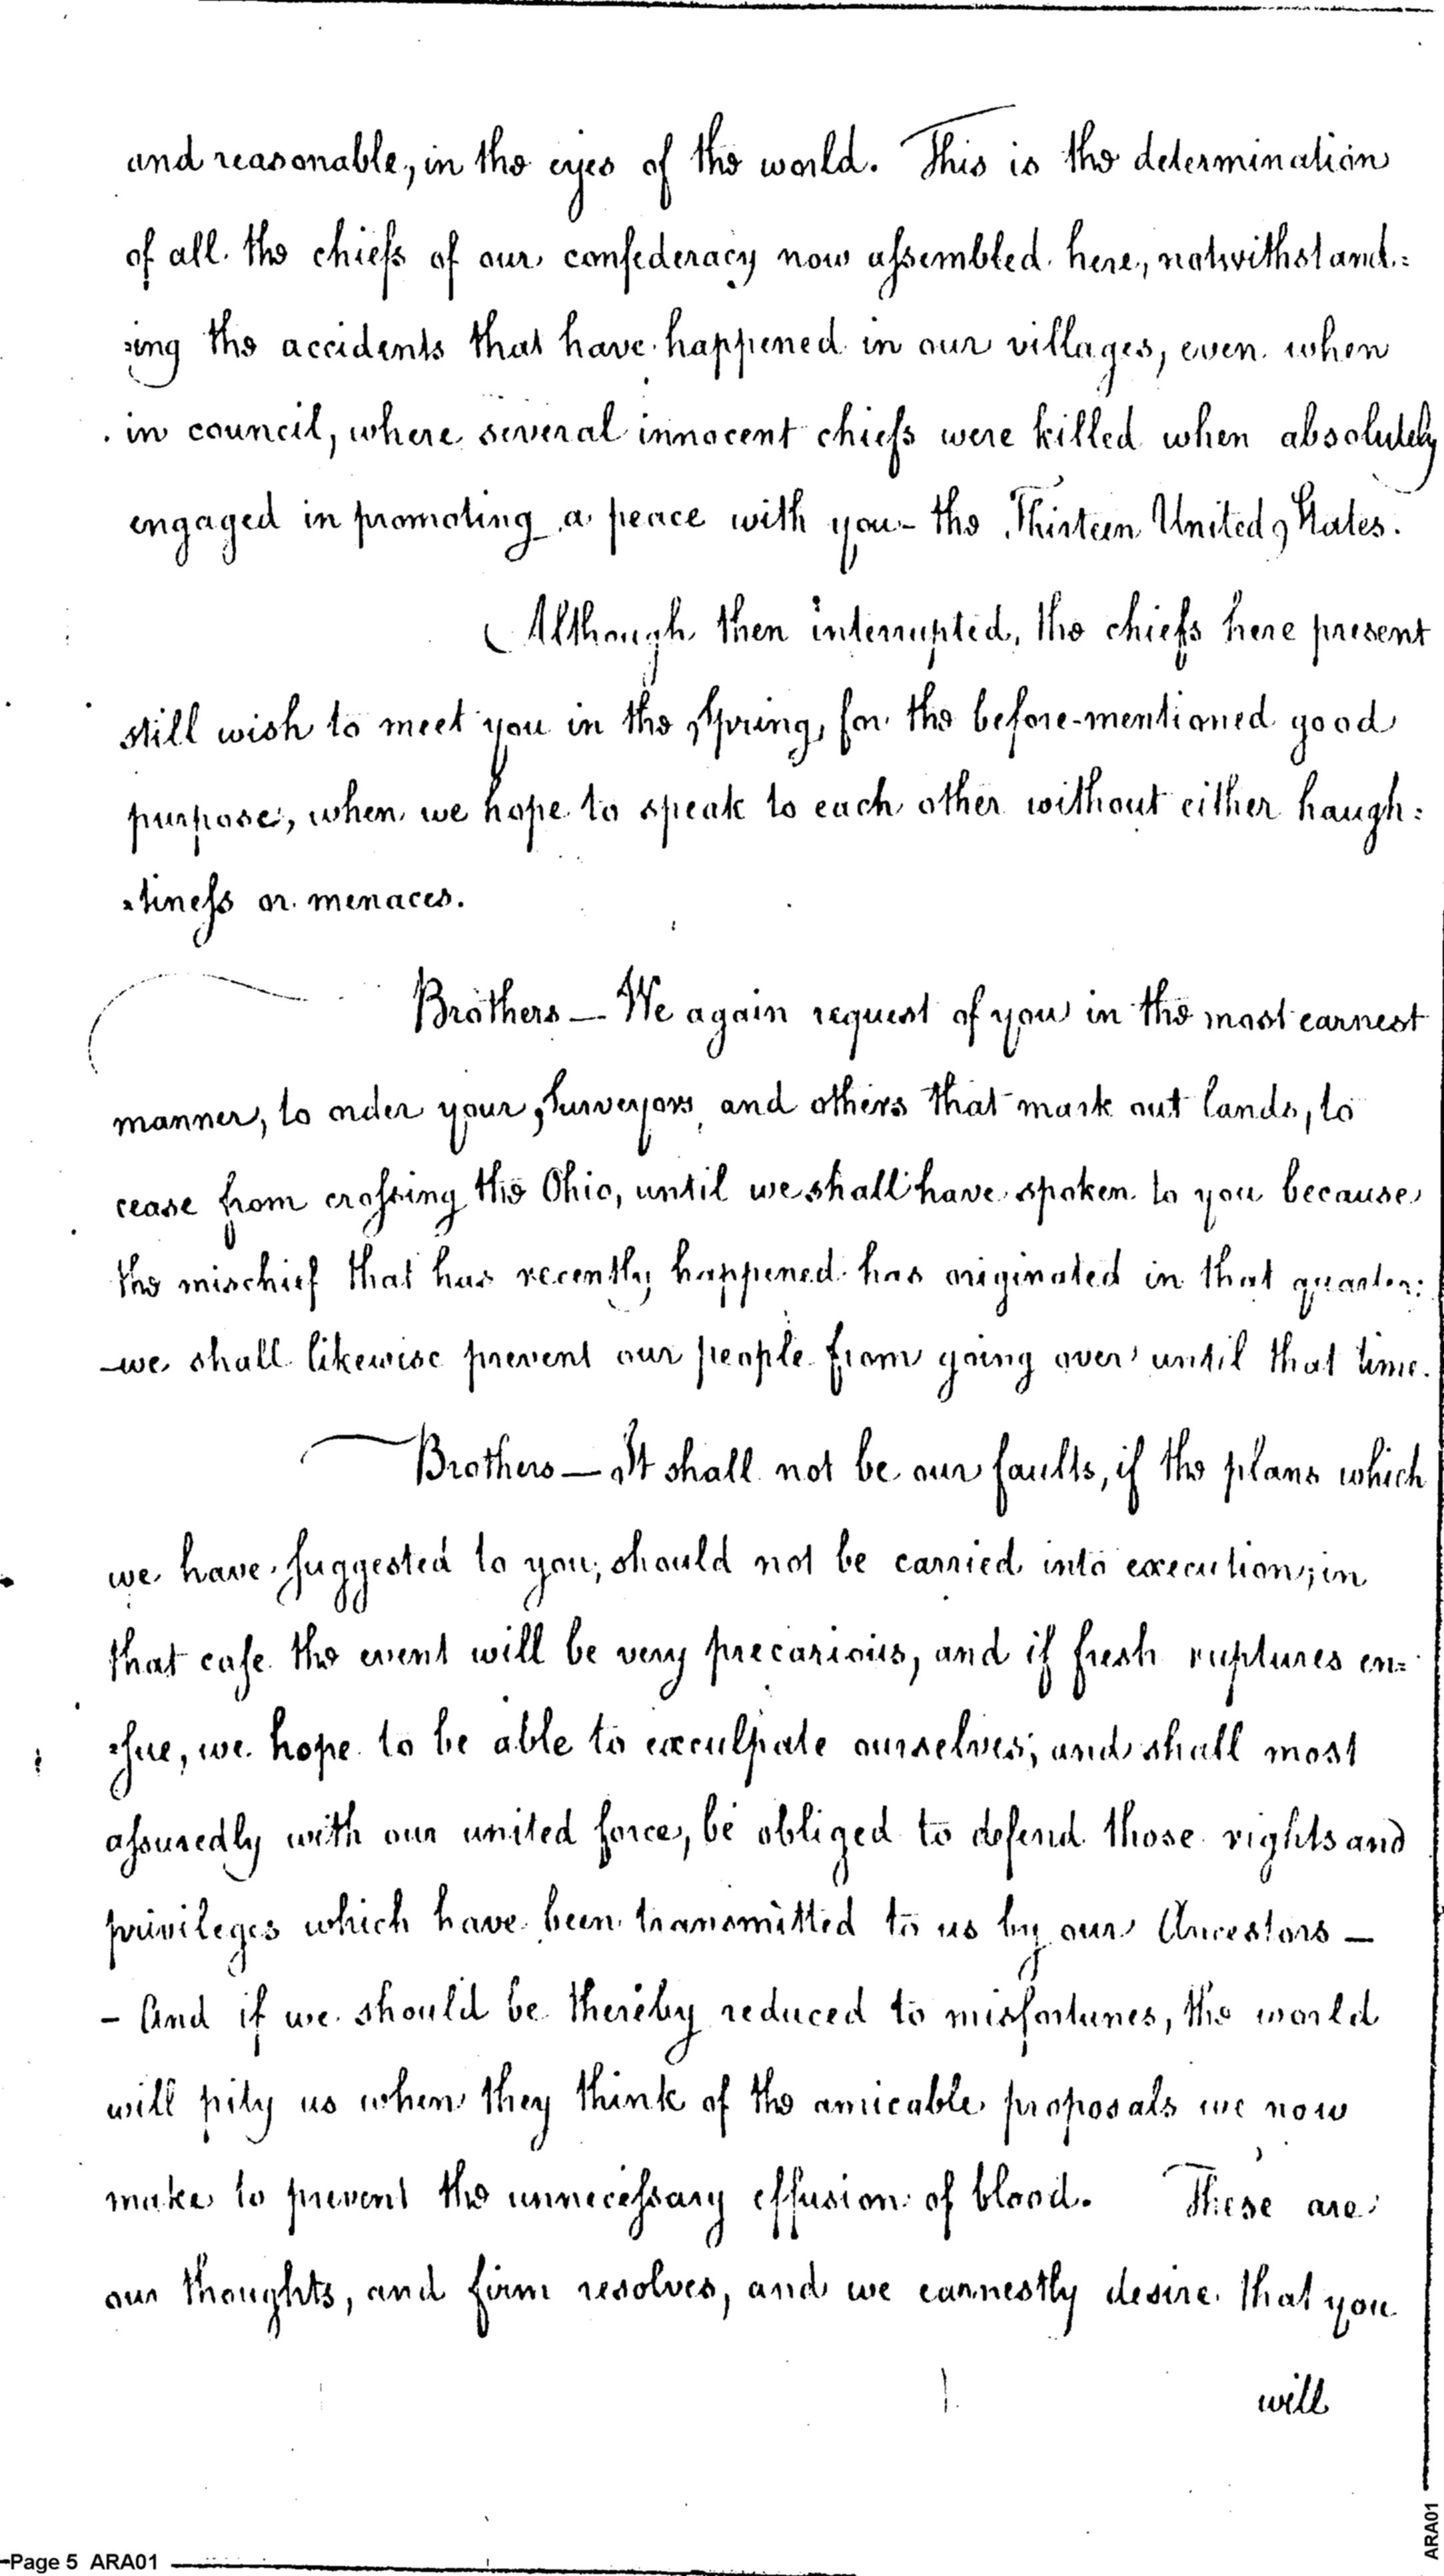 and reasonable, in the eyes of the world. This is the determination
of all the chiefs of our confederacy now assembled here, notwithstand:
:ing the accidents that have happened in our villages, even when
in council, where several innocent chiefs were killed when absolutely
engaged in promoting a peace with you - the Thirteen United States.
Although then interrupted, the chiefs here present
still wish to meet you in the Spring, for the before-mentioned good
purpose, when we hope to speak to each other without either haugh:
:tiness or menaces.
Brothers — We again request of you in the most earnest
manner, to order your Surveyors and others that mark out lands, to
cease from crossing the Ohio, until we shall have spoken to you because
the mischief that has recently happened has originated in that quarter:
- we shall likewise prevent our people from going over until that time.
Brothers — It shall not be our faults, if the plans which
we have suggested to you, should not be carried into execution; in
that case the event will be very precarious, and if fresh ruptures en:
:sue, we hope to be able to exculpate ourselves; and shall most
assuredly with our united force, be obliged to defend those rights and
privileges which have been transmitted to us by our Ancestors —
- And if we should be thereby reduced to misfortunes, the world
will pity us when they think of the amicable proposals we now
make to prevent the unnecessary effusion of blood. These are
our thoughts, and firm resolves, and we earnestly desire that you
will
Page 5 ARA01
ARA01